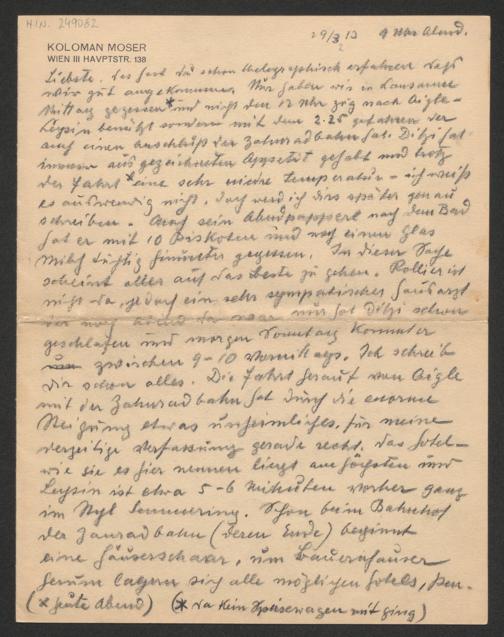 H.I.N. 249032
KOLOMAN MOSER
WIEN III HAVPTSTR. 138
29/3 13 9 Uhr Abend.
Liebste. Das hast du schon thelegraphisch erfahren daß
wir gut angekommen. Wir haben wir in Lausanne
Mittag gegessen * und nicht den 12 Uhr Zug nach Aigle-
Leysin benützt sondern mit dem 2.25 gefahren der
auch einen Anschluß der Zahnradbahn hat. Ditzi hat
immer ausgezeichneten Appetit gehabt und trotz
der Fahrt * eine sehr niedre Temperatur – ich weiß
es auswendig nicht, doch werd ich dirs später genau
schreiben. Auf sein Abendpapperl nach dem Bad
hat er mit 10 Biskoten und noch einen Glas
Milch tüchtig hinunter gegessen. In dieser Sache
scheint alles auf das Beste zu gehen. Rollier ist
nicht da, jedoch ein sehr sympatischer Hausarzt
der noch abend da war, nur hat Ditzi schon
geschlafen und morgen Sonntag kommt er
zwischen 9–10 Vormittags. Ich schreib
dir schon alles. Die Fahrt herauf von Aigle
mit der Zahnradbahn hat durch die enorme
Neigung etwas unheimliches, für meine
derzeitige Verfassung gerade recht. Das Hotel –
wie sie es hier nennen liegt am höchsten und
Leysin ist etwa 5–6 Minuten vorher ganz
im Styl Semmering. Schon beim Bahnhof
der Zanradbahn (deren Ende) beginnt
eine Häuserschaar, um Bauernhäuser
herum lagern sich alle möglichen Hotels, Pen-
(* heute Abend) (* da kein Speisewagen mit ging)